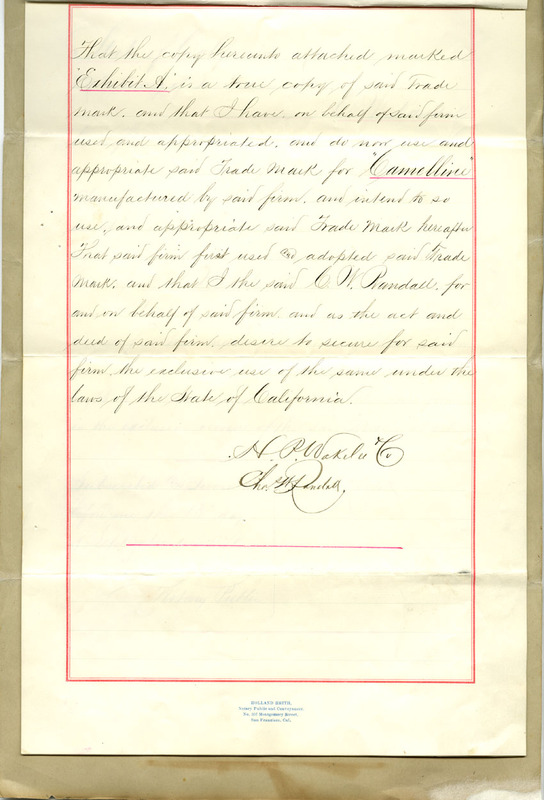 That the copy hereunto attached marked
"Exhibit A." is a true copy of said Trade
Mark. and that I have, on behalf of said firm
used and appropriated, and do now use and
appropriate said Trade Mark for "Camelline"
manufactured by said firm, and intend to so
use, and appropriate said Trade Mark hereafter
That said firm first used and adopted said Trade
Mark. and that I the said C. W. Randall, for
and on behalf of said firm, and as the act and
deed of said firm, desire to secure for said
firm, the exclusive use of the same under the
laws of the State of California.
H. P. Wakelee & Co
Chas. W. Randall.
HOLLAND SMITH,
Notary Public and Conveyancer,
Montgomery Street,
San Francisco, Cal.